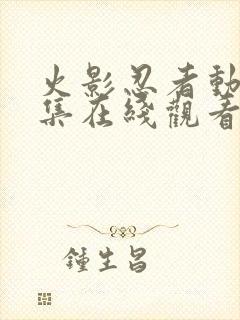 火影忍者動
集在綫觀看
鍾生昌